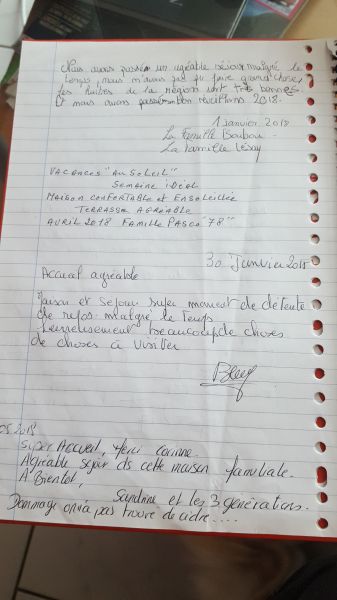 Nous avons passés un agréable séjour malgré le
temps, nous n'avons pas pu faire grand chose,
les huîtres de la régions sont très bonnes.
Et nous avons réveillons 2018.
1 Janvier 2018
La famille Boubou
La famille
VACANCES "AU SOLEIL"
SEMAINE IDÉAL
MAISON CONFORTABLE ET ENSOLEILLÉE
TERRASSE AGRÉABLE
AVRIL 2018 FAMILLE PASCO "78"
30 Janvier 2018
Accueil agréable
Maison et séjour super moment de détente
de repos malgré le temps
heureusement beaucoup de choses
de choses à visiter
05.2018
Super Accueil, Merci Corinne.
Agréable séjour ds cette maison familiale.
A Bientôt,
Sandrine et les 3 générations.
Dommage on n'a pas trouvé de cidre....